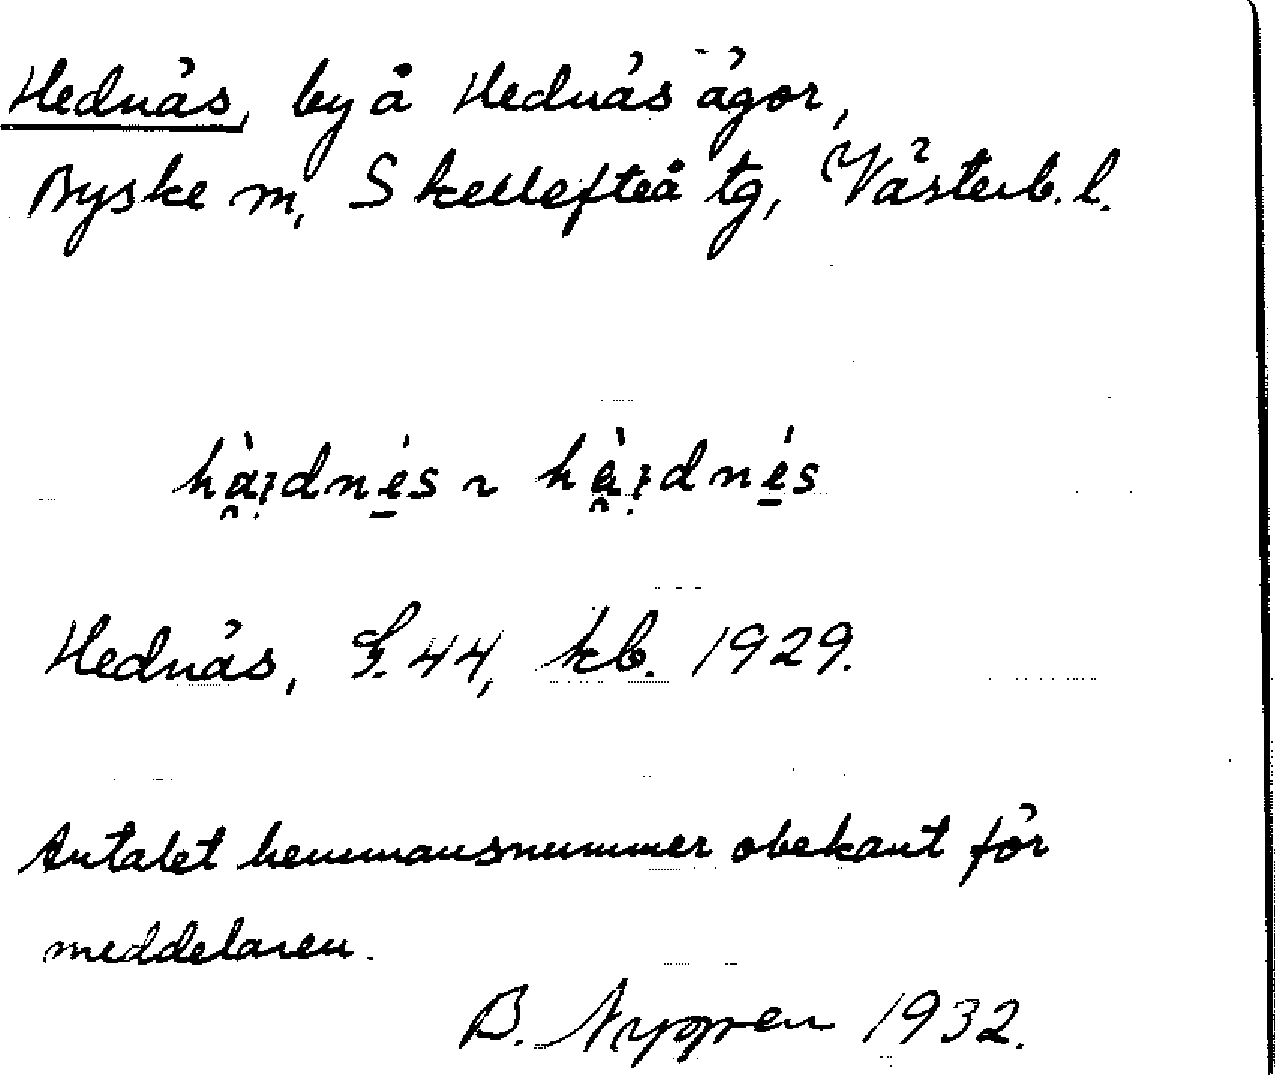 Hednäs, by å Hednäs ägor,
Byske sn, Skellefteå tg, Västerb. l.
Hednäs, S. 44, kb. 1929.
Antalet hemmansnummer obekant för
meddelaren.
B. Nygren 1932.